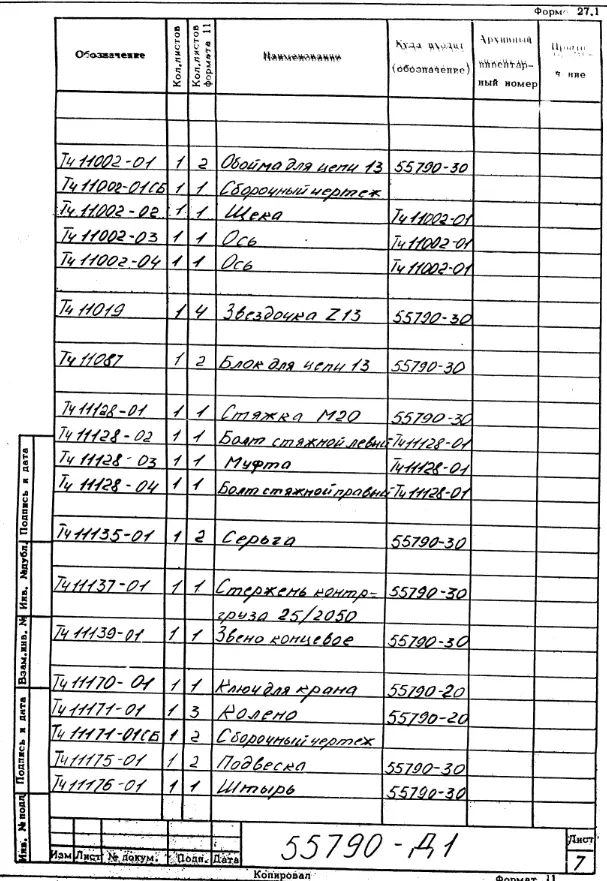 Форма 27.1
Обозначение Кол.листов Кол.листов формата 11 Наименование Куда входит (обозначение) Архивный инвентарный номер
Тч 11002-01 1 2 Обойма для цепи 13 55790-30
Тч 11002-01СБ 1 1 Сборочный чертеж
Тч 11002-02 1 1 Щека Тч 11002-01
Тч 11002-03 1 1 Ось Тч 11002-01
Тч 11002-04 1 1 Ось Тч 11002-01
Тч 11019 1 4 Звездочка Z13 55790-30
Тч 11087 1 2 Блок для цепи 13 55790-30
Тч 11128-01 1 1 Стяжка М20 55790-30
Тч 11128-02 1 1 Болт стяжной левый Тч 11128-01
Тч 11128-03 1 1 Муфта Тч 11128-01
Тч 11128-04 1 1 Болт стяжной правый Тч 11128-01
Тч 11135-01 1 2 Серьга 55790-30
Тч 11137-01 1 1 Стержень контр- 55790-30
груза 25/2050
Тч 11139-01 1 1 Звено концевое 55790-30
Тч 11170-01 1 1 Ключ для крана 55790-20
Тч 11171-01 1 3 Колено 55790-20
Тч 11171-01СБ 1 2 Сборочный чертеж
Тч 11175-01 1 2 Подвеска 55790-30
Тч 11176-01 1 1 Штырь 55790-30
Инв. № подл. Подпись и дата Взам.инв. № Инв. №дубл. Подпись и дата
55790-Д1
Лист
7
Изм Лист № докум. Подп. Дата
Копировал Формат 11